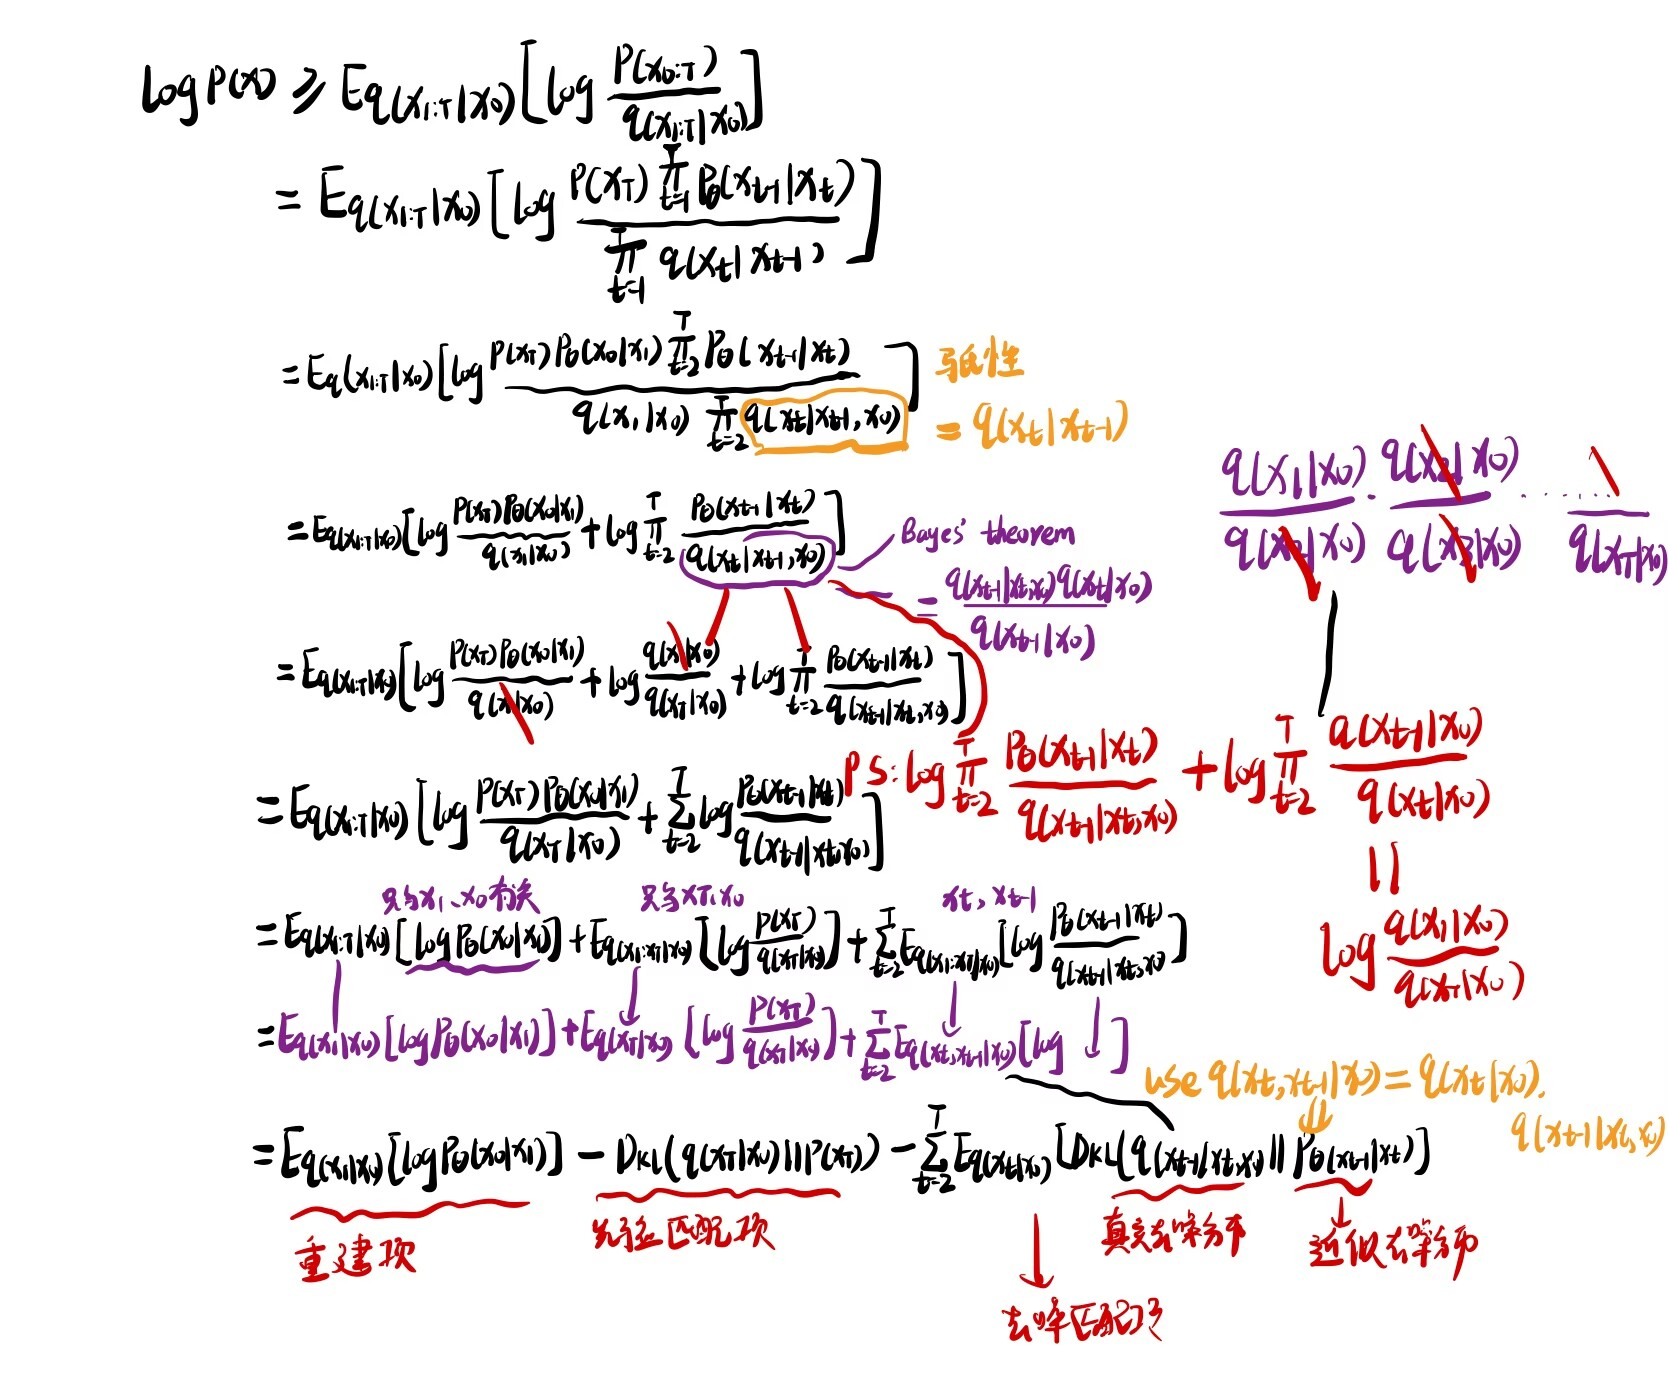 log P(x) ⩾ E_{q(x_{1:T}|x_0)} [ log \frac{P(x_{0:T})}{q(x_{1:T}|x_0)} ]
= E_{q(x_{1:T}|x_0)} [ log \frac{P(x_T) \prod_{t=1}^{T} P_θ(x_{t-1}|x_t)}{\prod_{t=1}^{T} q(x_t|x_{t-1})} ]
= E_{q(x_{1:T}|x_0)} [ log \frac{P(x_T) P_θ(x_0|x_1) \prod_{t=2}^{T} P_θ(x_{t-1}|x_t)}{q(x_1|x_0) \prod_{t=2}^{T} q(x_t|x_{t-1}, x_0)} ]
马氏性
= q(x_t|x_{t-1})
\frac{q(x_1|x_0)}{q(x_2|x_0)} · \frac{q(x_2|x_0)}{q(x_3|x_0)} ······ \frac{\ }{q(x_T|x_0)}
= E_{q(x_{1:T}|x_0)} [ log \frac{P(x_T) P_θ(x_0|x_1)}{q(x_1|x_0)} + log \prod_{t=2}^{T} \frac{P_θ(x_{t-1}|x_t)}{q(x_t|x_{t-1}, x_0)} ]
Bayes' theorem
= \frac{q(x_{t-1}|x_t,x_0) q(x_t|x_0)}{q(x_{t-1}|x_0)}
= E_{q(x_{1:T}|x_0)} [ log \frac{P(x_T) P_θ(x_0|x_1)}{q(x_1|x_0)} + log \frac{q(x_1|x_0)}{q(x_T|x_0)} + log \prod_{t=2}^{T} \frac{P_θ(x_{t-1}|x_t)}{q(x_{t-1}|x_t, x_0)} ]
PS: log \prod_{t=2}^{T} \frac{P_θ(x_{t-1}|x_t)}{q(x_{t-1}|x_t, x_0)} + log \prod_{t=2}^{T} \frac{q(x_{t-1}|x_0)}{q(x_t|x_0)}
= E_{q(x_{1:T}|x_0)} [ log \frac{P(x_T) P_θ(x_0|x_1)}{q(x_T|x_0)} + \sum_{t=2}^{T} log \frac{P_θ(x_{t-1}|x_t)}{q(x_{t-1}|x_t, x_0)} ]
||
log \frac{q(x_1|x_0)}{q(x_T|x_0)}
只与x_1、x_0有关
只与x_T, x_0
x_t, x_{t-1}
= E_{q(x_{1:T}|x_0)} [log P_θ(x_0|x_1)] + E_{q(x_1:x_T|x_0)} [ log \frac{P(x_T)}{q(x_T|x_0)} ] + \sum_{t=2}^{T} E_{q(x_1:x_T|x_0)} [ log \frac{P_θ(x_{t-1}|x_t)}{q(x_{t-1}|x_t, x_0)} ]
= E_{q(x_1|x_0)} [log P_θ(x_0|x_1)] + E_{q(x_T|x_0)} [ log \frac{P(x_T)}{q(x_T|x_0)} ] + \sum_{t=2}^{T} E_{q(x_t, x_{t-1}|x_0)} [ log ↓ ]
use q(x_t, x_{t-1}|x_0) = q(x_t|x_0).
q(x_{t-1}|x_t, x_0)
= E_{q(x_1|x_0)} [log P_θ(x_0|x_1)] − D_{KL}(q(x_T|x_0)||P(x_T)) − \sum_{t=2}^{T} E_{q(x_t|x_0)} [D_{KL}(q(x_{t-1}|x_t,x_0)||P_θ(x_{t-1}|x_t)]
重建项
先验匹配项
真实去噪分布
近似去噪分布
去噪匹配项